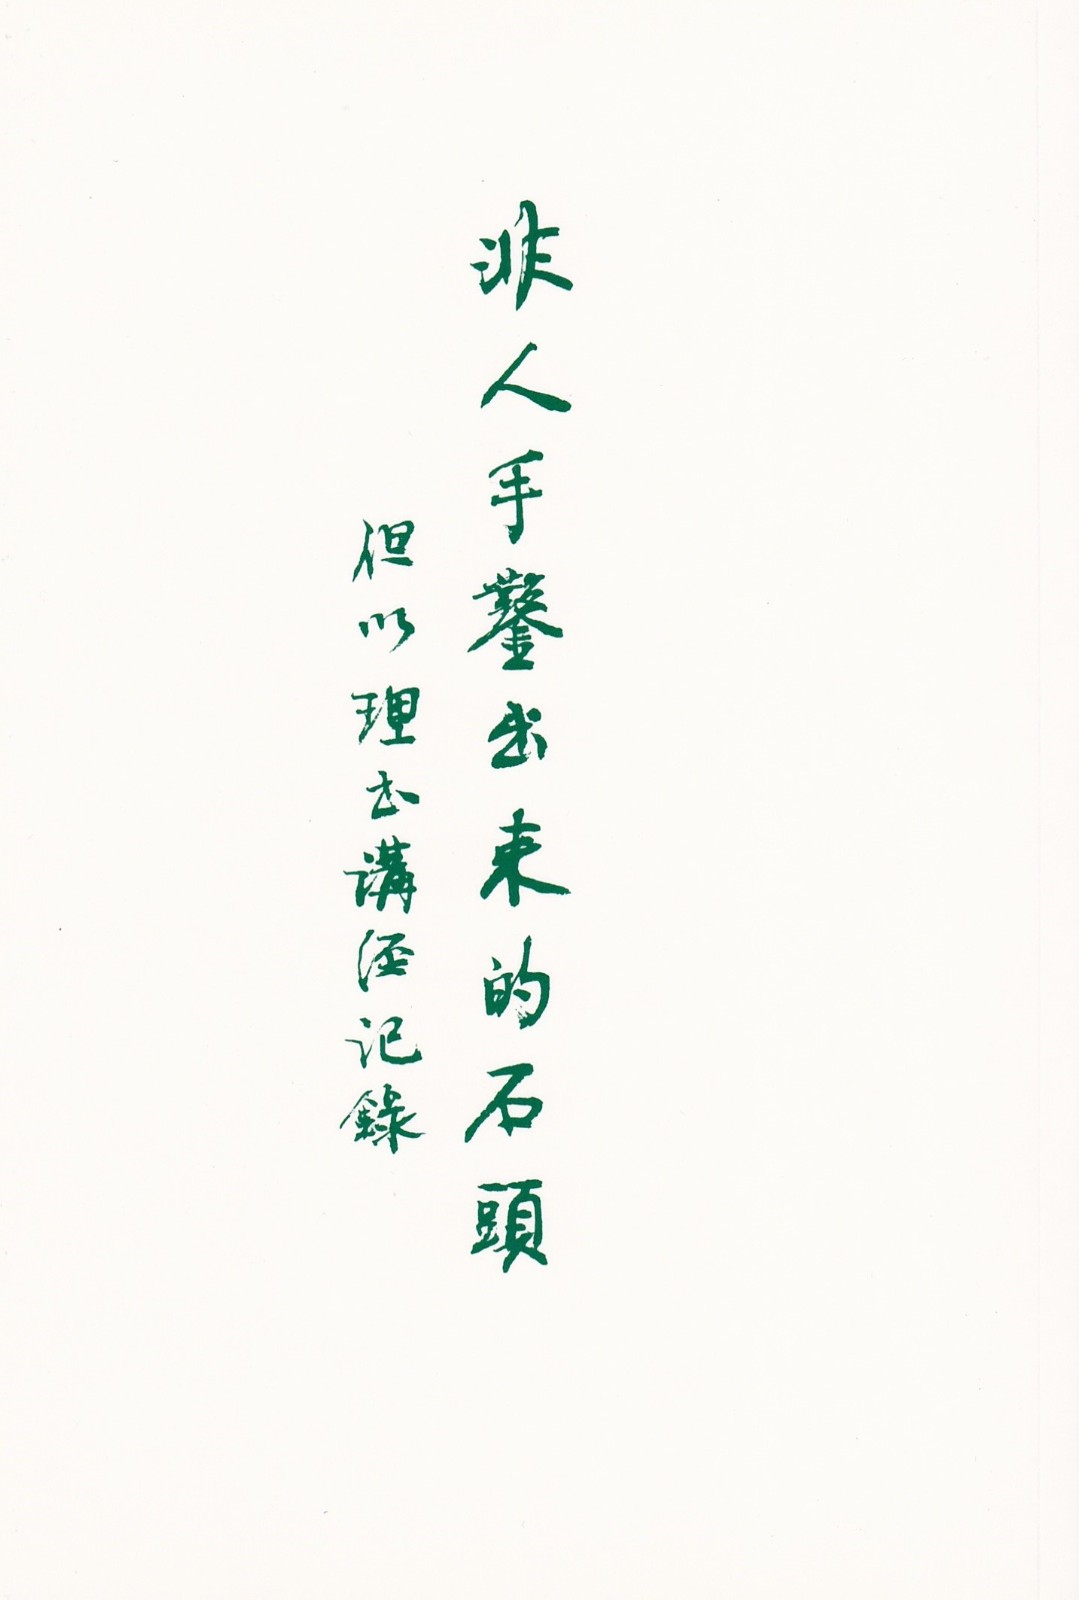 非人手鑿出來的石頭
但以理書講經記錄